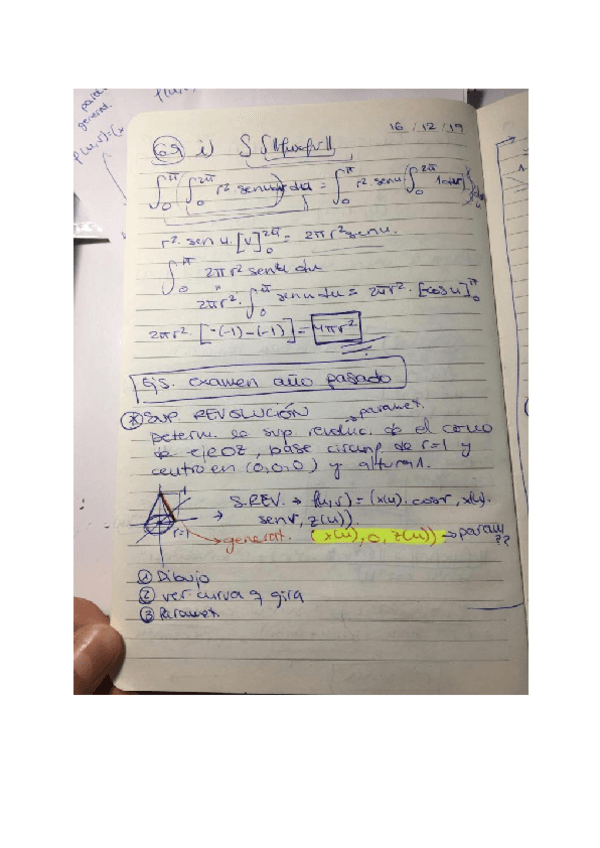 para
general.
f(u,v)=(x
16/12/19
69 i) ∫∫ ||fu×fv||
∫₀^π (∫₀^2π r² senu dv) du = ∫₀^π r² senu (∫₀^2π 1 dv) du
r². senu. [v]₀^2π = 2πr² senu.
∫₀^π 2πr² senu du
2πr². ∫₀^π senu du = 2πr². [-cosu]₀^π
2πr². [-(-1)-(-1)] = 4πr²
Ejs. examen año pasado
* SUP REVOLUCIÓN → paramet.
Determ. la sup. revoluc. de el cono
de eje OZ, base circunf. de r=1 y
centro en (0,0,0) y altura 1.
S.REV. → f(u,v) = (x(u).cosv, x(u).
senv, z(u)).
r=1
→ generat. (x(u), 0, z(u)) → param
??
① Dibujo
② ver curva q gira
③ Paramet.